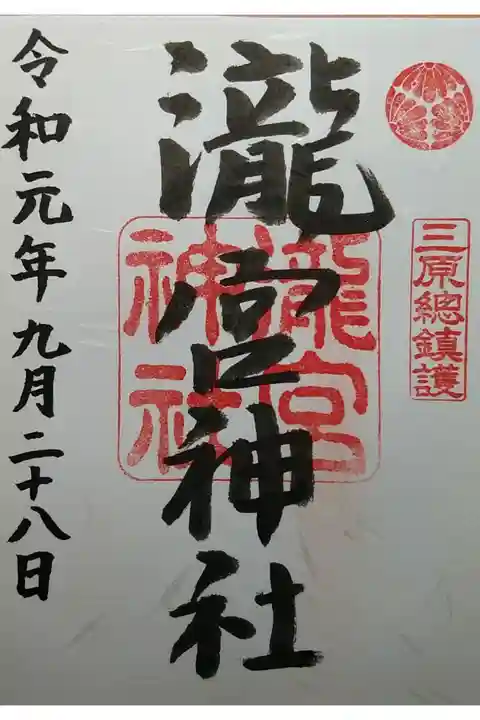 三原總鎮護
瀧宮神社
瀧宮
神社
令和元年九月二十八日